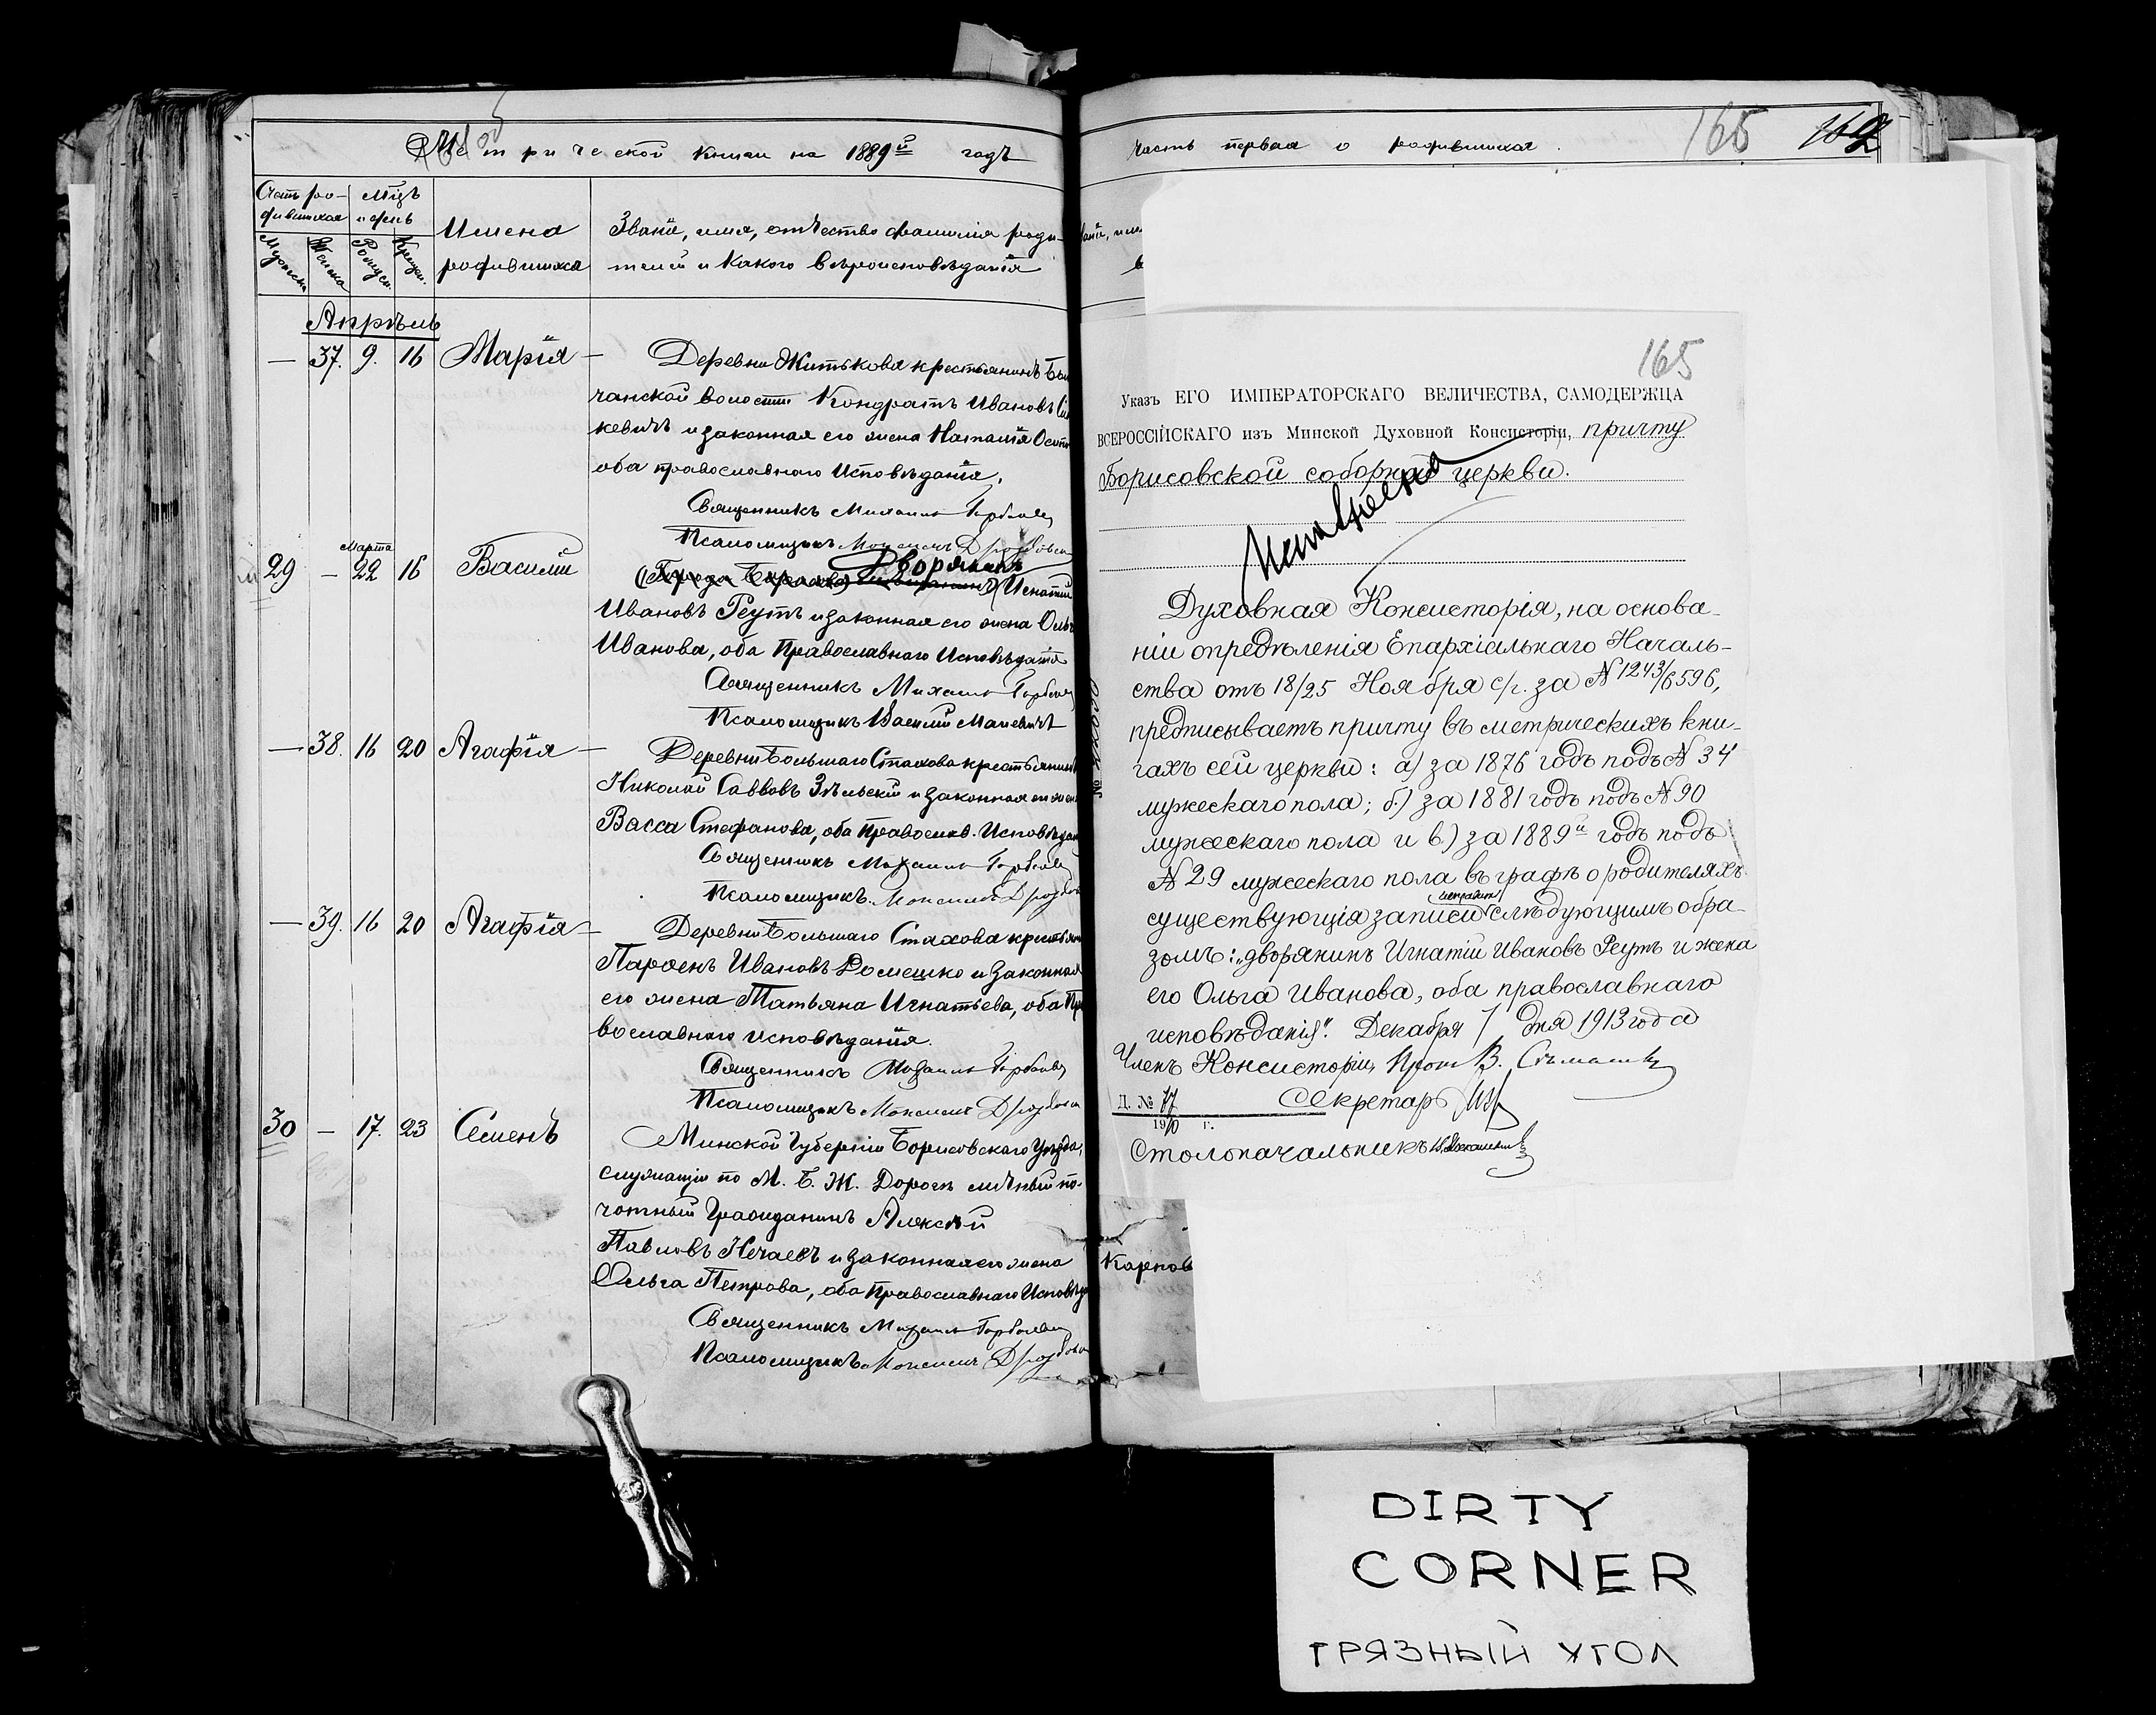 Метрической книги на 1889й годъ
Счетъ ро-
дившихся
Мцъ
и день
Мужеска
Женска
Рожден.
Крещен.
Имена
родившихся
Званіе, имя, отчество фамилія роди-
телей и какого вѣроисповѣданія
Апрѣль
— 37. 9. 16 Марія —
Деревни Житькова крестьянинъ
чанской волости Кондратъ Ивановъ
кевичъ и законная его жена Наталія
оба православнаго Исповѣданія.
Священникъ Михаилъ
Псаломщикъ
29 — Марта 22 16 Василій
Дворянинъ
(Города Борисова) Игнатій
Ивановъ Реутъ и законная его жена
Иванова, оба Православнаго Исповѣданія
Священникъ Михаилъ
Псаломщикъ Василій
— 38. 16 20 Агафія —
Деревни Большаго Стахова крестьянинъ
Николай Саввовъ и законная его жена
Васса Стефанова, оба Правосл.
Священникъ Михаилъ
Псаломщикъ
— 39. 16 20 Агафія —
Деревни Большаго Стахова
Парѳенъ Ивановъ Ромешко и законная
его жена Татьяна Игнатьева, оба Пр
вославнаго исповѣданія.
Священникъ Михаилъ
Псаломщикъ
30 — 17. 23 Семенъ
Минской Губерніи Борисовскаго Уѣзда,
служащій по М. Б. Ж. Дорогѣ личный по-
чотный Гражданинъ Алексѣй
Павловъ Нечаевъ и законная его жена
Ольга Петрова, оба Православнаго
Священникъ Михаилъ
Псаломщикъ
часть первая о родившихся.
165
165
Указъ ЕГО ИМПЕРАТОРСКАГО ВЕЛИЧЕСТВА, САМОДЕРЖЦА
ВСЕРОССІЙСКАГО изъ Минской Духовной Консисторіи, причту
Борисовской соборной церкви.
Духовная Консисторія, на основа-
ніи опредѣленія Епархіальнаго Началь-
ства отъ 18/25 Ноября с/г. за № 1243/6596,
предписываетъ причту въ метрическихъ кни-
гахъ сей церкви: а) за 1876 годъ подъ № 34
мужескаго пола; б.) за 1881 годъ подъ № 90
мужескаго пола и в) за 1889й годъ подъ
№ 29 мужескаго пола въ графѣ о родителяхъ
исправить
существующія записи слѣдующимъ обра-
зомъ: „дворянинъ Игнатій Ивановъ Реутъ и жена
его Ольга Иванова, оба православнаго
исповѣданія". Декабря 7 дня 1913 года
Членъ Консисторіи, Прот. В.
Секретарь
Д. № 77
19 г.
Столоначальникъ
Карпов
DIRTY
CORNER
ГРЯЗНЫЙ УГОЛ